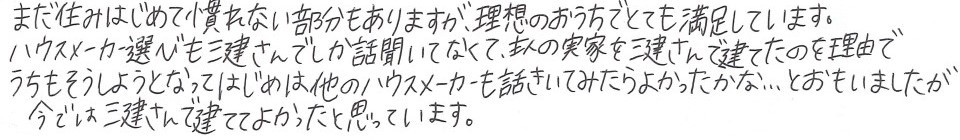 まだ住みはじめて慣れない部分もありますが、理想のおうちでとても満足しています。
ハウスメーカー選びも三建さんでしか話聞いてなくて、主人の実家を三建さんで建てたのを理由で
うちもそうしようとなってはじめは他のハウスメーカーも話きいてみたらよかったかな…とおもいましたが
今では三建さんで建ててよかったと思っています。